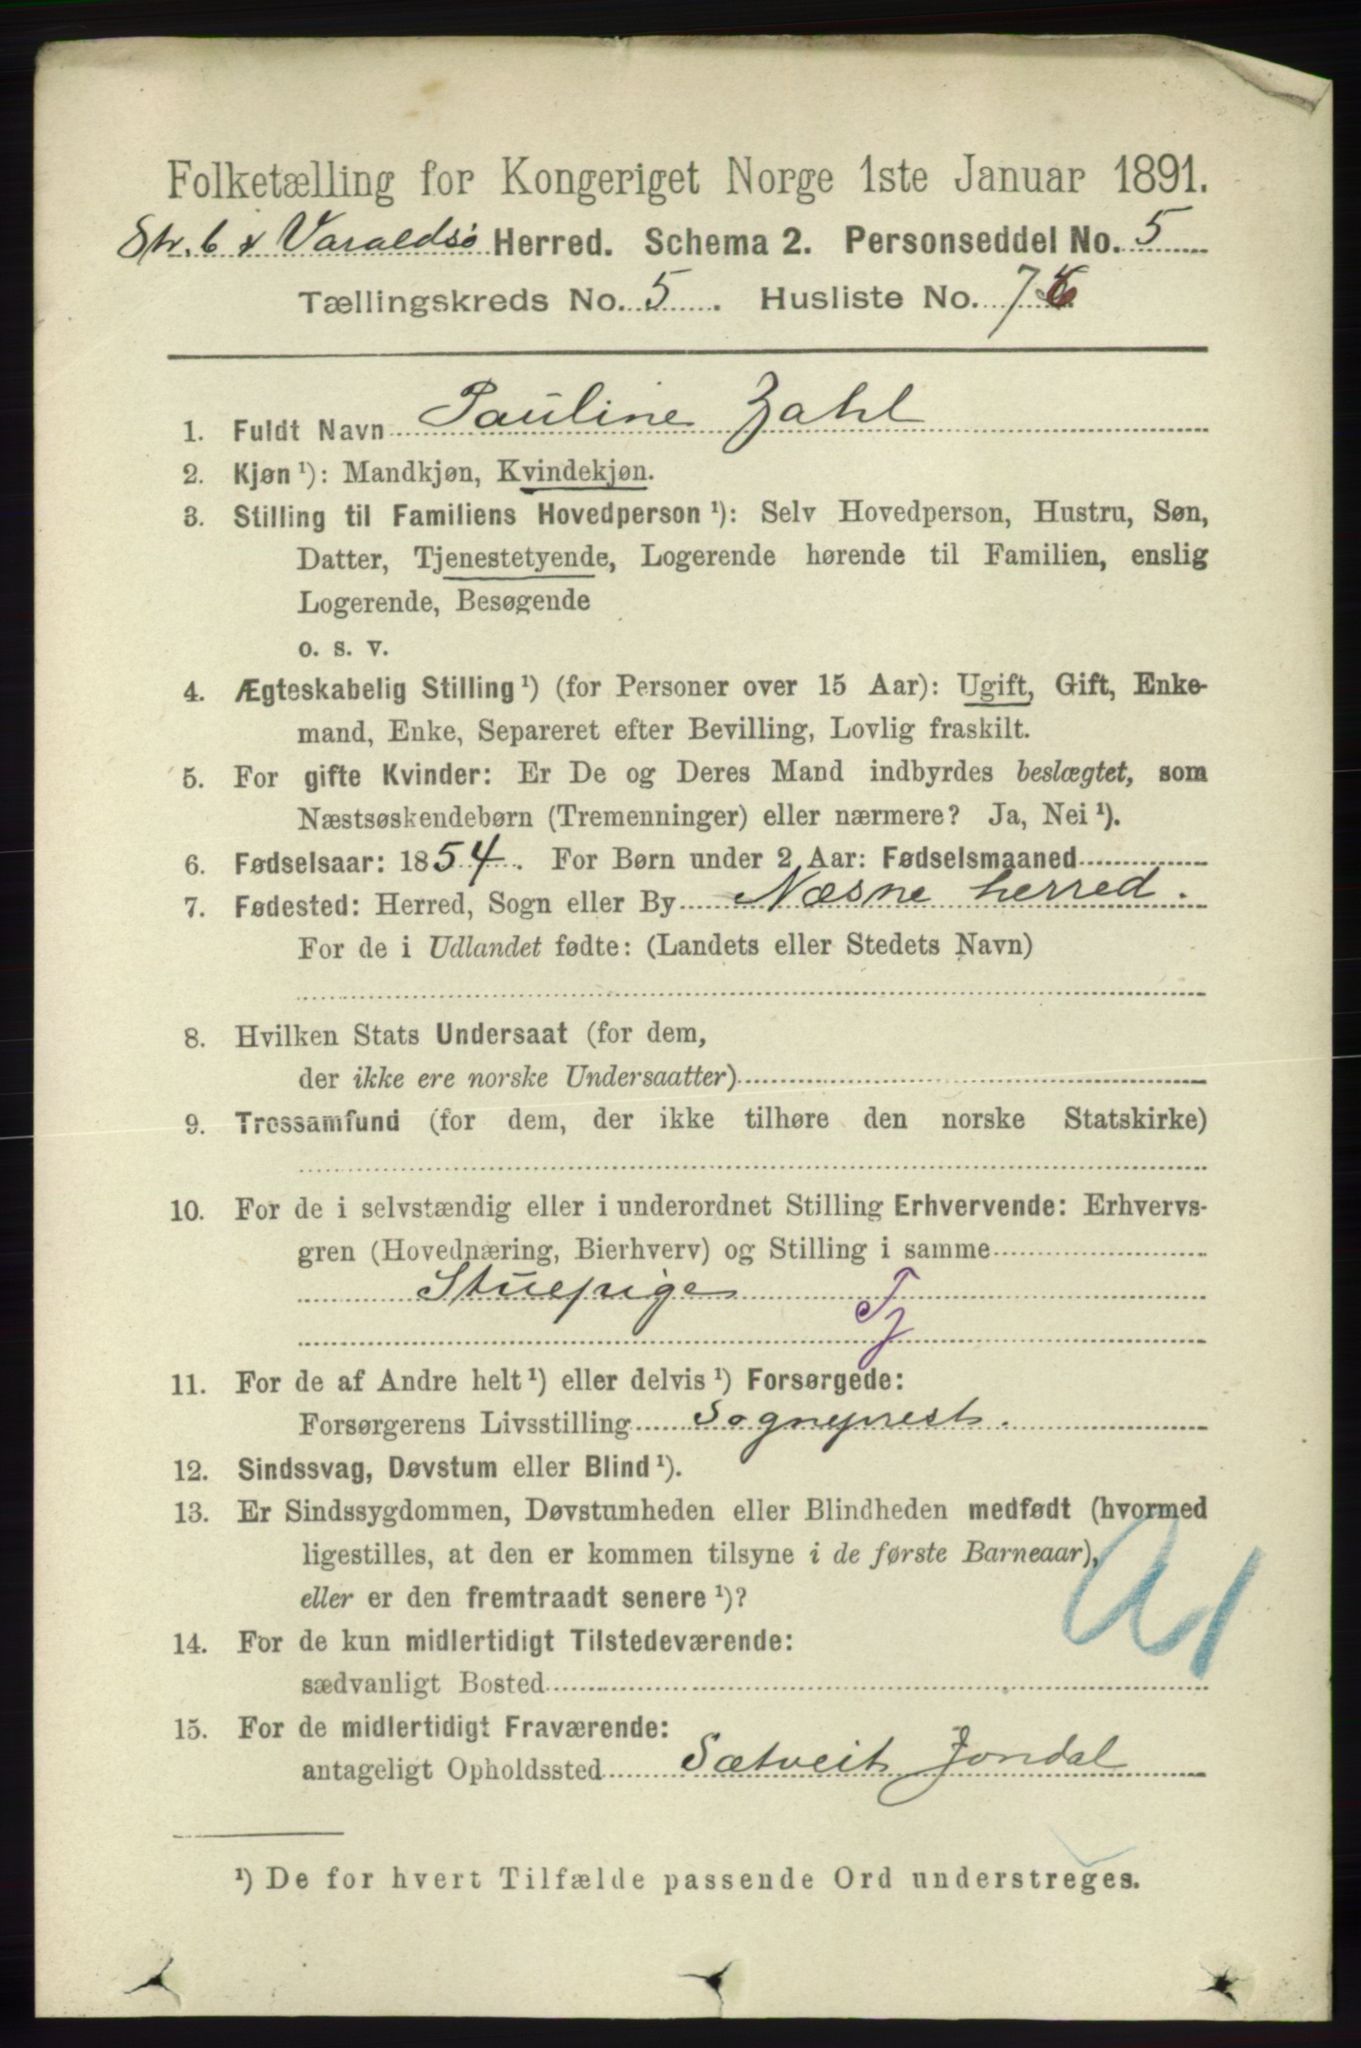 Folketælling for Kongeriget Norge 1ste Januar 1891.
Str. b. & Varaldsø Herred. Schema 2. Personseddel No. 5
Tællingskreds No. 5. Husliste No. 76
1. Fuldt Navn Pauline Zahl
2. Kjøn ¹): Mandkjøn, Kvindekjøn.
3. Stilling til Familiens Hovedperson ¹): Selv Hovedperson, Hustru, Søn,
Datter, Tjenestetyende, Logerende hørende til Familien, enslig
Logerende, Besøgende
o. s. v.
4. Ægteskabelig Stilling ¹) (for Personer over 15 Aar): Ugift, Gift, Enke-
mand, Enke, Separeret efter Bevilling, Lovlig fraskilt.
5. For gifte Kvinder: Er De og Deres Mand indbyrdes beslægtet, som
Næstsøskendebørn (Tremenninger) eller nærmere? Ja, Nei ¹).
6. Fødselsaar: 1854. For Børn under 2 Aar: Fødselsmaaned
7. Fødested: Herred, Sogn eller By Næsne herred.
For de i Udlandet fødte: (Landets eller Stedets Navn)
8. Hvilken Stats Undersaat (for dem,
der ikke ere norske Undersaatter)
9. Trossamfund (for dem, der ikke tilhøre den norske Statskirke)
10. For de i selvstændig eller i underordnet Stilling Erhvervende: Erhvervs-
gren (Hovednæring, Bierhverv) og Stilling i samme
Stuepige
Tj
11. For de af Andre helt ¹) eller delvis ¹) Forsørgede:
Forsørgerens Livsstilling Sogneprest.
12. Sindssvag, Døvstum eller Blind ¹).
13. Er Sindssygdommen, Døvstumheden eller Blindheden medfødt (hvormed
ligestilles, at den er kommen tilsyne i de første Barneaar),
eller er den fremtraadt senere ¹)?
14. For de kun midlertidigt Tilstedeværende:
sædvanligt Bosted
15. For de midlertidigt Fraværende:
antageligt Opholdssted Sætveit Jondal
¹) De for hvert Tilfælde passende Ord understreges.